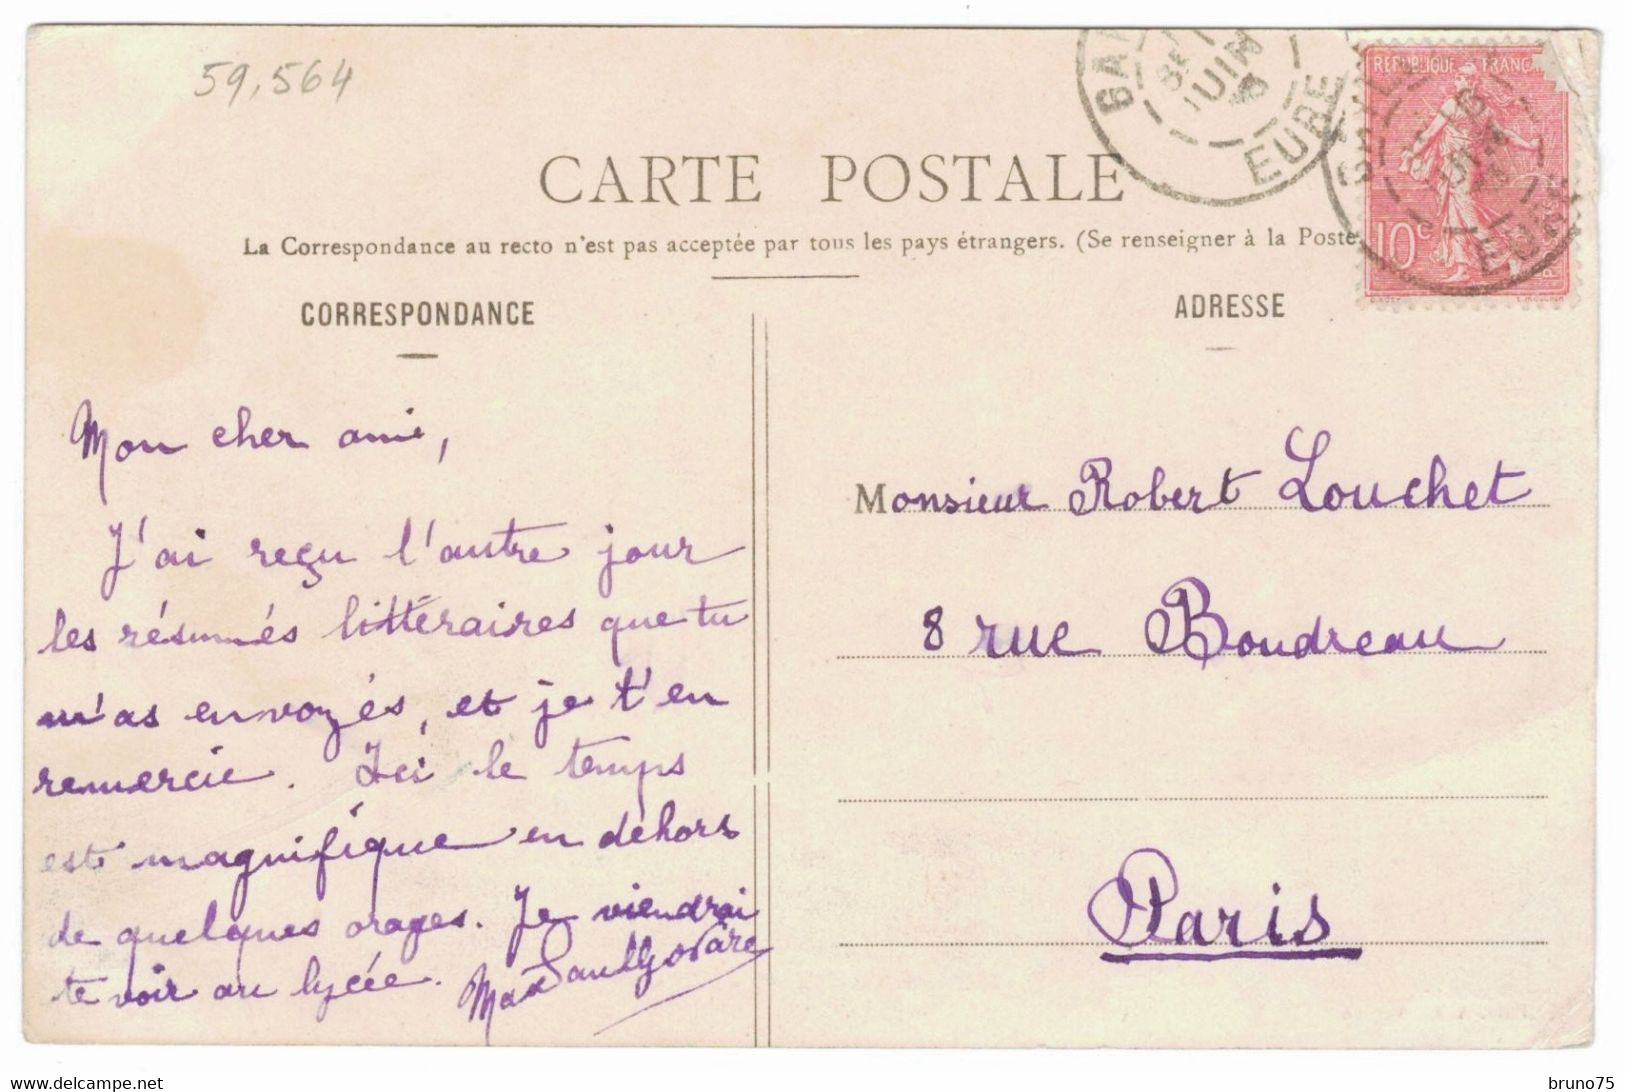 59,564
CARTE POSTALE
La Correspondance au recto n'est pas acceptée par tous les pays étrangers. (Se renseigner à la Poste
CORRESPONDANCE
Mon cher ami,
J'ai reçu l'autre jour
les résumés littéraires que tu
m'as envoyés, et je t'en
remercie. Ici le temps
est magnifique en dehors
de quelques orages. Je viendrai
te voir au lycée.
ADRESSE
REPUBLIQUE FRANÇ
10c
JUIN
EURE
EURE
Monsieur Robert Louchet
8 rue Boudreau
Paris
bruno75